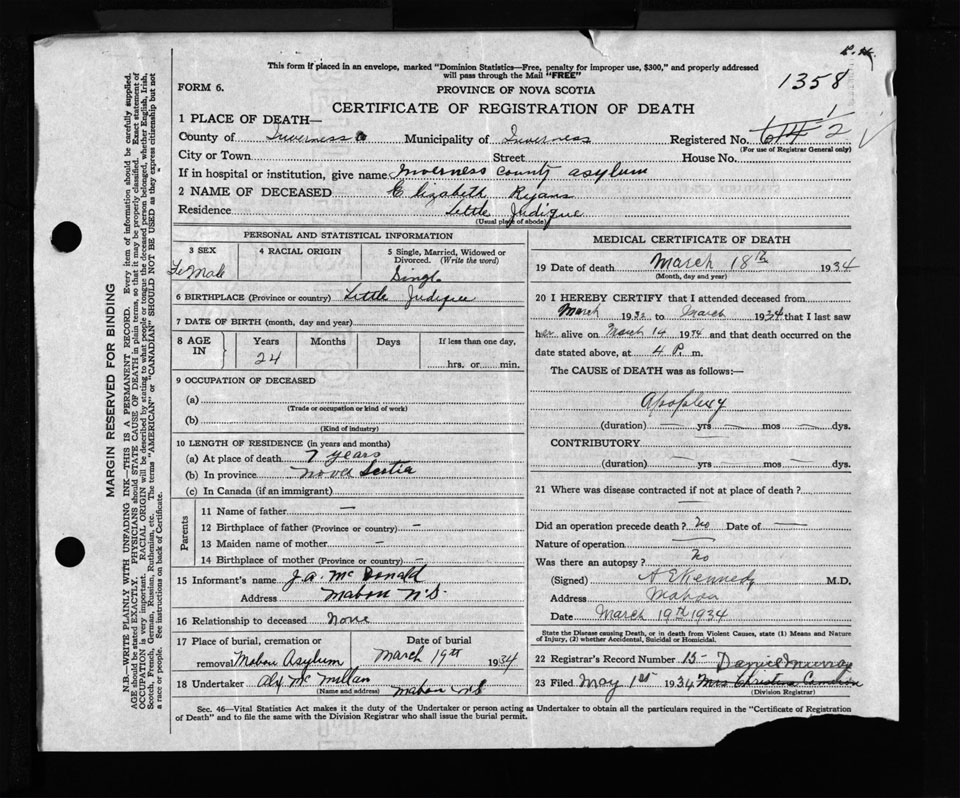 This form if placed in an envelope, marked "Dominion Statistics—Free, penalty for improper use, $300," and properly addressed
will pass through the Mail "FREE"
1358
FORM 6.
PROVINCE OF NOVA SCOTIA
CERTIFICATE OF REGISTRATION OF DEATH
1 PLACE OF DEATH—
County of Inverness Municipality of Inverness Registered No.
(For use of Registrar General only)
City or Town Street House No.
If in hospital or institution, give name Inverness County asylum
2 NAME OF DECEASED Elizabeth Ryans
Residence Little Judique
(Usual place of abode)
PERSONAL AND STATISTICAL INFORMATION
3 SEX
FeMale
4 RACIAL ORIGIN
5 Single, Married, Widowed or
Divorced. (Write the word)
Single
6 BIRTHPLACE (Province or country) Little Judique
7 DATE OF BIRTH (month, day and year)
8 AGE IN
Years Months Days If less than one day,
24 hrs. or min.
9 OCCUPATION OF DECEASED
(a)
(Trade or occupation or kind of work)
(b)
(Kind of industry)
10 LENGTH OF RESIDENCE (in years and months)
(a) At place of death 7 years
(b) In province Nova Scotia
(c) In Canada (if an immigrant)
Parents
11 Name of father —
12 Birthplace of father (Province or country) —
13 Maiden name of mother —
14 Birthplace of mother (Province or country) —
15 Informant's name J.A. McDonald
Address Mabou N.S.
16 Relationship to deceased None
17 Place of burial, cremation or Date of burial
removal Mabou Asylum March 19th 1934
18 Undertaker Alex McMillan
(Name and address) Mabou N.S
MEDICAL CERTIFICATE OF DEATH
19 Date of death March 18th 1934
(Month, day and year)
20 I HEREBY CERTIFY that I attended deceased from
March 1932 to March 1934 that I last saw
her alive on March 14 1934 and that death occurred on the
date stated above, at 4 P. m.
The CAUSE of DEATH was as follows:—
Apoplexy
(duration) — yrs — mos — dys.
CONTRIBUTORY
(duration) — yrs — mos — dys.
21 Where was disease contracted if not at place of death?
—
Did an operation precede death? No Date of —
Nature of operation —
Was there an autopsy? No
(Signed) A E Kennedy M.D.
Address Mabou
Date March 19th 1934
State the Disease causing Death, or in death from Violent Causes, state (1) Means and Nature
of Injury, (2) whether Accidental, Suicidal or Homicidal.
22 Registrar's Record Number 15
23 Filed May 1st 1934 Mrs Christina Cameron
(Division Registrar)
Sec. 46—Vital Statistics Act makes it the duty of the Undertaker or person acting as Undertaker to obtain all the particulars required in the "Certificate of Registration
of Death" and to file the same with the Division Registrar who shall issue the burial permit.
MARGIN RESERVED FOR BINDING
N.B.—WRITE PLAINLY WITH UNFADING INK—THIS IS A PERMANENT RECORD. Every item of information should be carefully supplied.
AGE should be stated EXACTLY. PHYSICIANS should STATE CAUSE OF DEATH in plain terms, so that it may be properly classified. Exact statement of
OCCUPATION is very important. RACIAL ORIGIN will be described by stating to what people or tongue the deceased person belonged, whether English, Irish,
Scotch, French, German, Russian, Ruthenian, etc. The terms "AMERICAN" or "CANADIAN" SHOULD NOT BE USED as they express citizenship but not
a race or people. See instructions on back of Certificate.